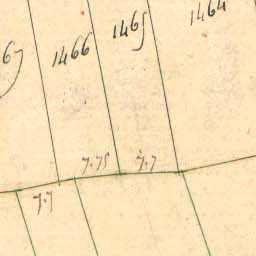 1464
1465
1466
67
7.75
7.7
7.7